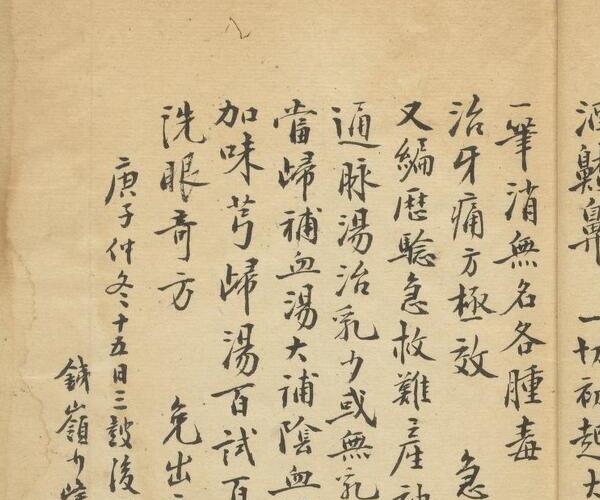 酒鼾鼻 一切初起大
一筆消無名各腫毒
治牙痛方極效 急
又編歷驗急救難產神
通脉湯治乳少或無乳
當歸補血湯大補陰血
加味芎歸湯百試百
洗眼奇方 免出
庚子仲冬十五日三鼓後
鉄嶺少